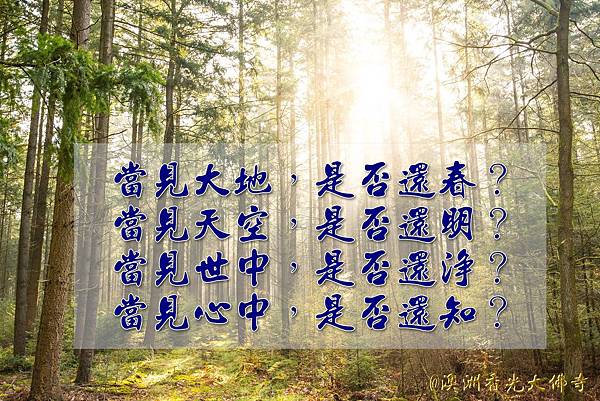 當見大地,是否還春?
當見天空,是否還明?
當見世中,是否還淨?
當見心中,是否還知?
@澳洲香光大佛寺